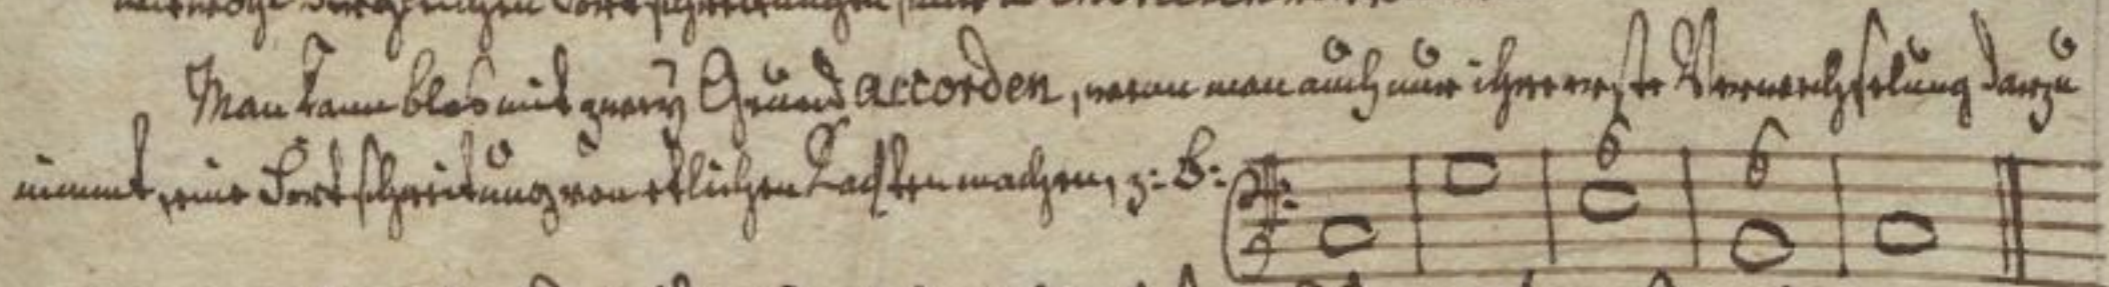 Man kann blos mit zweÿ Grund accorden, wenn man auch nur ihre erste Verwechselung darzu
nimmt, eine Fortschreitung von etlichen Tackten machen, z: B:
6 6